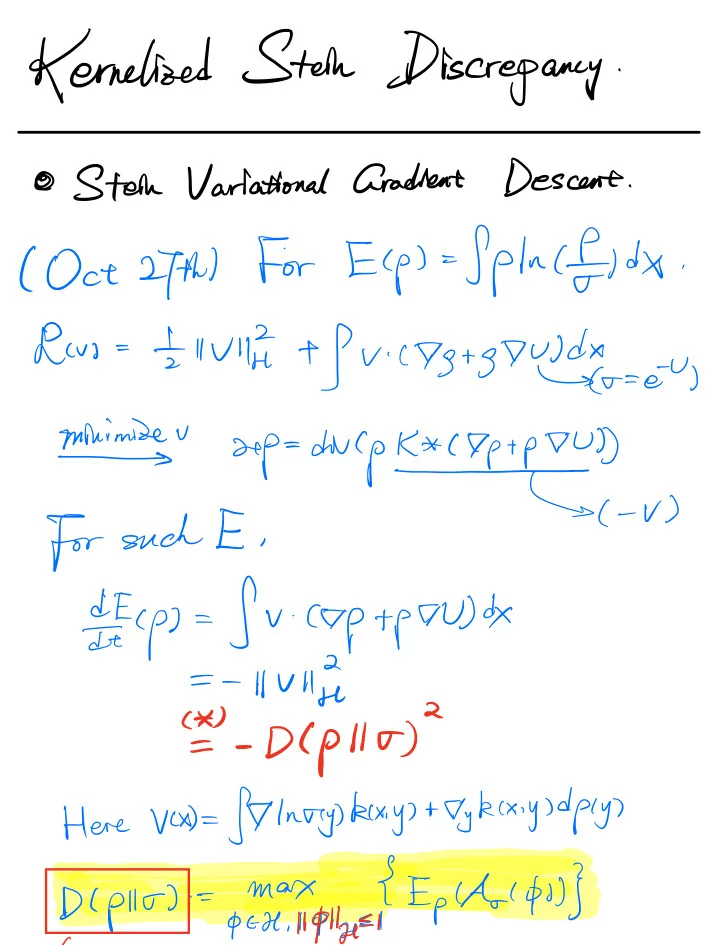 Kernelized Stein Discrepancy.
• Stein Variational Gradient Descent.
(Oct 27th) For E(ρ) = ∫ρ ln(ρ/σ) dx.
R(v) = 1/2 ||v||²_H + ∫ v·(∇ρ+ρ∇U) dx
(σ=e^{-U})
minimize v ∂tρ = div(ρ K*(∇ρ+ρ∇U))
(-v)
For such E,
dE/dt(ρ) = ∫ v·(∇ρ+ρ∇U) dx
= -||v||²_H
(*) = -D(ρ||σ)²
Here v(x) = ∫∇lnσ(y) k(x,y) + ∇_y k(x,y) dρ(y)
D(ρ||σ) := max_{φ∈H, ||φ||_H≤1} {E_ρ(A_σ(φ))}